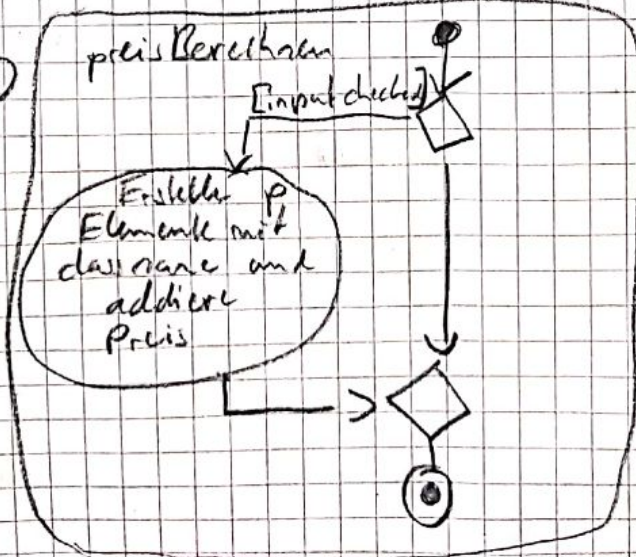 preisBerechnen
[input checked]
Erstelle p
Elemente mit
classname und
addiere
Preis